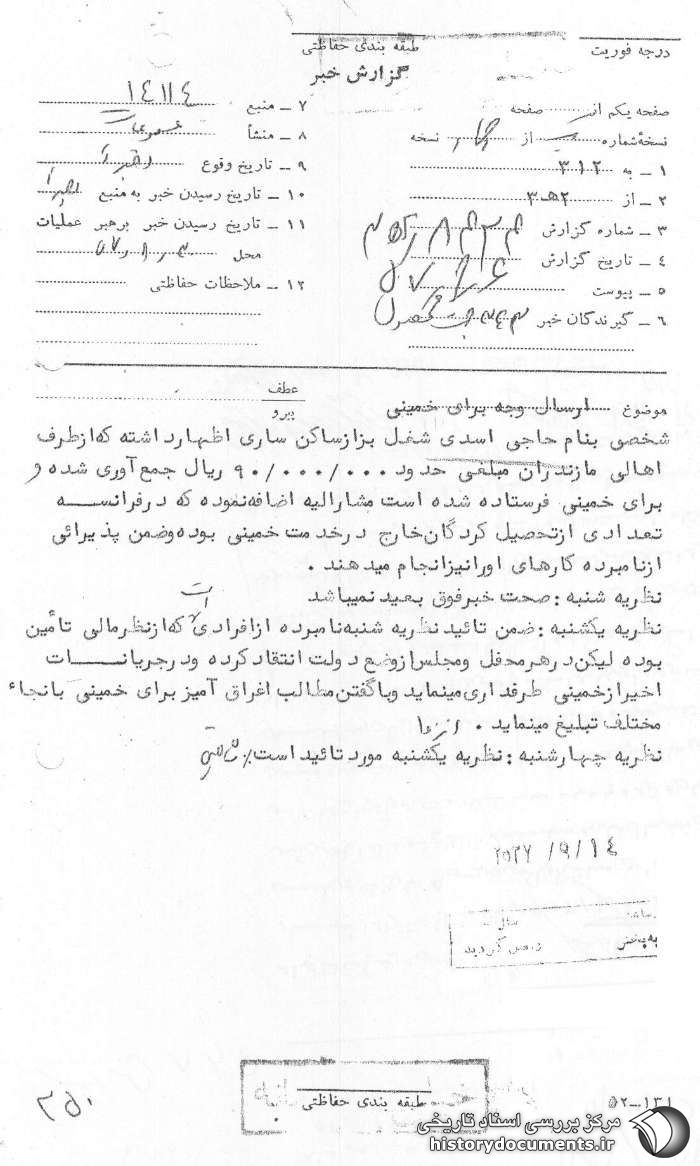 درجه فوریت
طبقه بندی حفاظتی
گزارش خبر
صفحه یکم از صفحه
نسخهٔ شماره از نسخه
۱ ـ به ۳۱۲
۲ ـ از ۳هـ۲
۳ ـ شماره گزارش
۴ ـ تاریخ گزارش
۵ ـ پیوست
۶ ـ گیرندگان خبر
۷ ـ منبع ۱۴۱۱۴
۸ ـ منشأ
۹ ـ تاریخ وقوع اخیراً
۱۰ ـ تاریخ رسیدن خبر به منبع اخیراً
۱۱ ـ تاریخ رسیدن خبر برهبر عملیات
محل
۱۲ ـ ملاحظات حفاظتی
عطف
پیرو
موضوع ارسال وجه برای خمینی
شخصی بنام حاجی اسدی شغل بزاز ساکن ساری اظهار داشته که از طرف
اهالی مازندران مبلغی حدود ۹۰/۰۰۰/۰۰۰ ریال جمع آوری شده و
برای خمینی فرستاده شده است مشارالیه اضافه نموده که در فرانسه
تعدادی از تحصیل کردگان خارج در خدمت خمینی بوده و ضمن پذیرائی
از نامبرده کارهای او را نیز انجام میدهند .
نظریه شنبه : صحت خبر فوق بعید نمیباشد
نظریه یکشنبه : ضمن تائید نظریه شنبه نامبرده از افرادی است که از نظر مالی تأمین
بوده لیکن در هر محفل و مجلس از وضع دولت انتقاد کرده و در جریانات
اخیر از خمینی طرفداری مینماید و با گفتن مطالب اغراق آمیز برای خمینی بانحاء
مختلف تبلیغ مینماید .
نظریه چهارشنبه : نظریه یکشنبه مورد تائید است٪
۲۵۳۷ /۹/۱۴
سال
به بخش
گردید
طبقه بندی حفاظتی
۳۵۰
۵۲–۱۳۱
مرکز بررسی اسناد تاریخی
historydocuments.ir